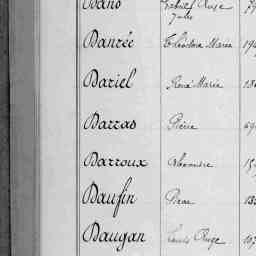 Dano Gabriel Ange 79
Jules
Danrée Théodore Marie 194
Dariel René Marie
Darras Pierre 69
Darroux Alexandre 15
Daufin Pierre
Daugan Louis Ange 107